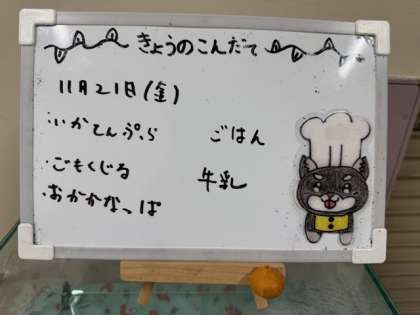 きょうのこんだて
11月21日(金)
・いかてんぷら
・ごもくじる
・おかかなっぱ
ごはん
牛乳